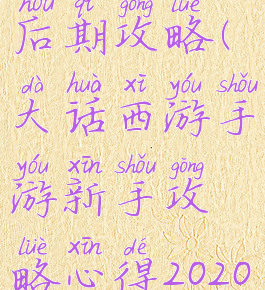 hòu qī gōng lüè
后期攻略(
dà huà xī yóu shǒu
大话西游手
yóu xīn shǒu gōng
游新手攻
lüè xīn dé
略心得2020